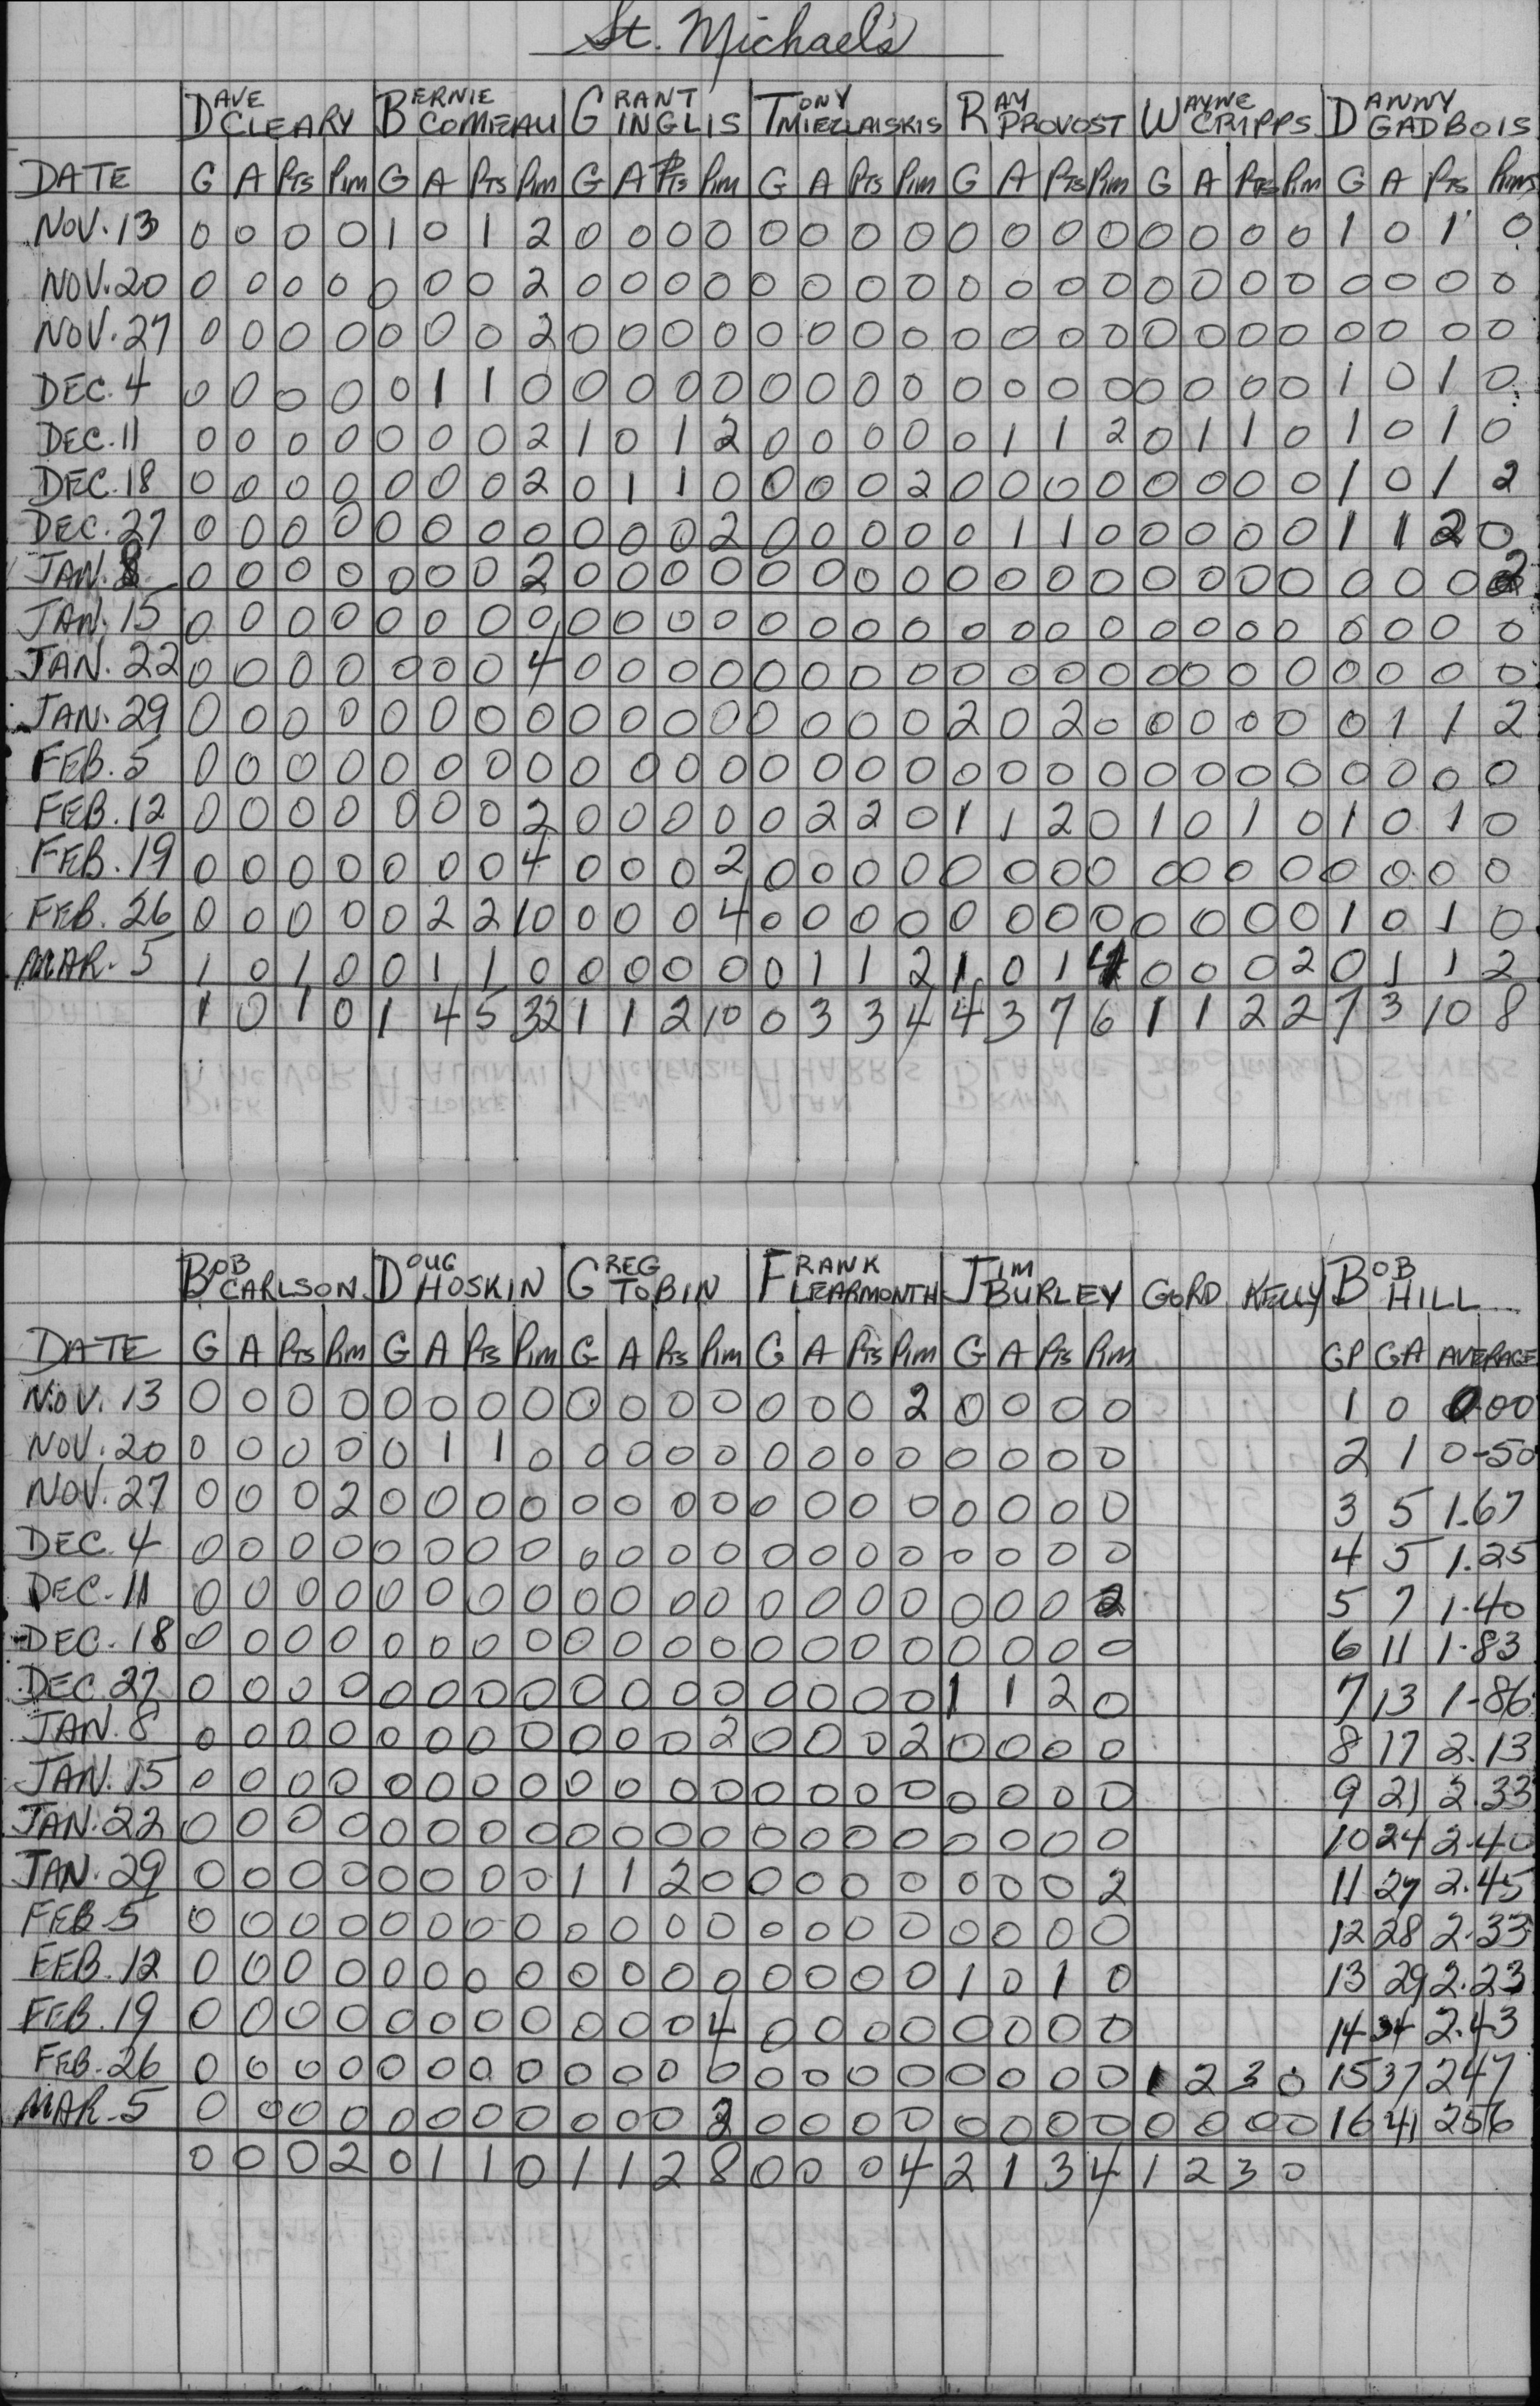 St. Michael's
DAVE CLEARY BERNIE COMEAU GRANT INGLIS TONY MIEZLAISKIS RAY PROVOST WAYNE CRIPPS DANNY GADBOIS
DATE G A PTS PIM G A PTS PIM G A PTS PIM G A PTS PIM G A PTS PIM G A PTS PIM G A PTS PIMS
NOV. 13 0 0 0 0 1 0 1 2 0 0 0 0 0 0 0 0 0 0 0 0 0 0 0 0 1 0 1 0
NOV. 20 0 0 0 0 0 0 0 2 0 0 0 0 0 0 0 0 0 0 0 0 0 0 0 0 0 0 0 0
NOV. 27 0 0 0 0 0 0 0 2 0 0 0 0 0 0 0 0 0 0 0 0 0 0 0 0 0 0 0 0
DEC. 4 0 0 0 0 0 1 1 0 0 0 0 0 0 0 0 0 0 0 0 0 0 0 0 0 1 0 1 0
DEC. 11 0 0 0 0 0 0 0 2 1 0 1 2 0 0 0 0 0 1 1 2 0 1 1 0 1 0 1 0
DEC. 18 0 0 0 0 0 0 0 2 0 1 1 0 0 0 0 2 0 0 0 0 0 0 0 0 1 0 1 2
DEC. 27 0 0 0 0 0 0 0 0 0 0 0 2 0 0 0 0 0 1 1 0 0 0 0 0 1 1 2 0
JAN. 8 0 0 0 0 0 0 0 2 0 0 0 0 0 0 0 0 0 0 0 0 0 0 0 0 0 0 0 2
JAN. 15 0 0 0 0 0 0 0 0 0 0 0 0 0 0 0 0 0 0 0 0 0 0 0 0 0 0 0 0
JAN. 22 0 0 0 0 0 0 0 4 0 0 0 0 0 0 0 0 0 0 0 0 0 0 0 0 0 0 0 0
JAN. 29 0 0 0 0 0 0 0 0 0 0 0 0 0 0 0 0 2 0 2 0 0 0 0 0 0 1 1 2
FEB. 5 0 0 0 0 0 0 0 0 0 0 0 0 0 0 0 0 0 0 0 0 0 0 0 0 0 0 0 0
FEB. 12 0 0 0 0 0 0 0 2 0 0 0 0 0 2 2 0 1 1 2 0 1 0 1 0 1 0 1 0
FEB. 19 0 0 0 0 0 0 0 4 0 0 0 2 0 0 0 0 0 0 0 0 0 0 0 0 0 0 0 0
FEB. 26 0 0 0 0 0 2 2 10 0 0 0 4 0 0 0 0 0 0 0 0 0 0 0 0 1 0 1 0
MAR. 5 1 0 1 0 0 1 1 0 0 0 0 0 0 1 1 2 1 0 1 4 0 0 0 2 0 1 1 2
1 0 1 0 1 4 5 32 1 1 2 10 0 3 3 4 4 3 7 6 1 1 2 2 7 3 10 8
BOB CARLSON DOUG HOSKIN GREG TOBIN FRANK LEARMONTH JIM BURLEY GORD KELLY BOB HILL
DATE G A PTS PIM G A PTS PIM G A PTS PIM G A PTS PIM G A PTS PIM GP GA AVERAGE
NOV. 13 0 0 0 0 0 0 0 0 0 0 0 0 0 0 0 2 0 0 0 0 1 0 0.00
NOV. 20 0 0 0 0 0 1 1 0 0 0 0 0 0 0 0 0 0 0 0 0 2 1 0-50
NOV. 27 0 0 0 2 0 0 0 0 0 0 0 0 0 0 0 0 0 0 0 0 3 5 1.67
DEC. 4 0 0 0 0 0 0 0 0 0 0 0 0 0 0 0 0 0 0 0 0 4 5 1.25
DEC. 11 0 0 0 0 0 0 0 0 0 0 0 0 0 0 0 0 0 0 0 2 5 7 1.40
DEC. 18 0 0 0 0 0 0 0 0 0 0 0 0 0 0 0 0 0 0 0 0 6 11 1.83
DEC. 27 0 0 0 0 0 0 0 0 0 0 0 0 0 0 0 0 1 1 2 0 7 13 1-86
JAN. 8 0 0 0 0 0 0 0 0 0 0 0 2 0 0 0 2 0 0 0 0 8 17 2.13
JAN. 15 0 0 0 0 0 0 0 0 0 0 0 0 0 0 0 0 0 0 0 0 9 21 2.33
JAN. 22 0 0 0 0 0 0 0 0 0 0 0 0 0 0 0 0 0 0 0 0 10 24 2.40
JAN. 29 0 0 0 0 0 0 0 0 1 1 2 0 0 0 0 0 0 0 0 2 11 27 2.45
FEB. 5 0 0 0 0 0 0 0 0 0 0 0 0 0 0 0 0 0 0 0 0 12 28 2.33
FEB. 12 0 0 0 0 0 0 0 0 0 0 0 0 0 0 0 0 1 0 1 0 13 29 2.23
FEB. 19 0 0 0 0 0 0 0 0 0 0 0 4 0 0 0 0 0 0 0 0 14 34 2.43
FEB. 26 0 0 0 0 0 0 0 0 0 0 0 0 0 0 0 0 0 0 0 0 1 2 3 0 15 37 247
MAR. 5 0 0 0 0 0 0 0 0 0 0 0 2 0 0 0 0 0 0 0 0 0 0 0 0 16 41 256
0 0 0 2 0 1 1 0 1 1 2 8 0 0 0 4 2 1 3 4 1 2 3 0